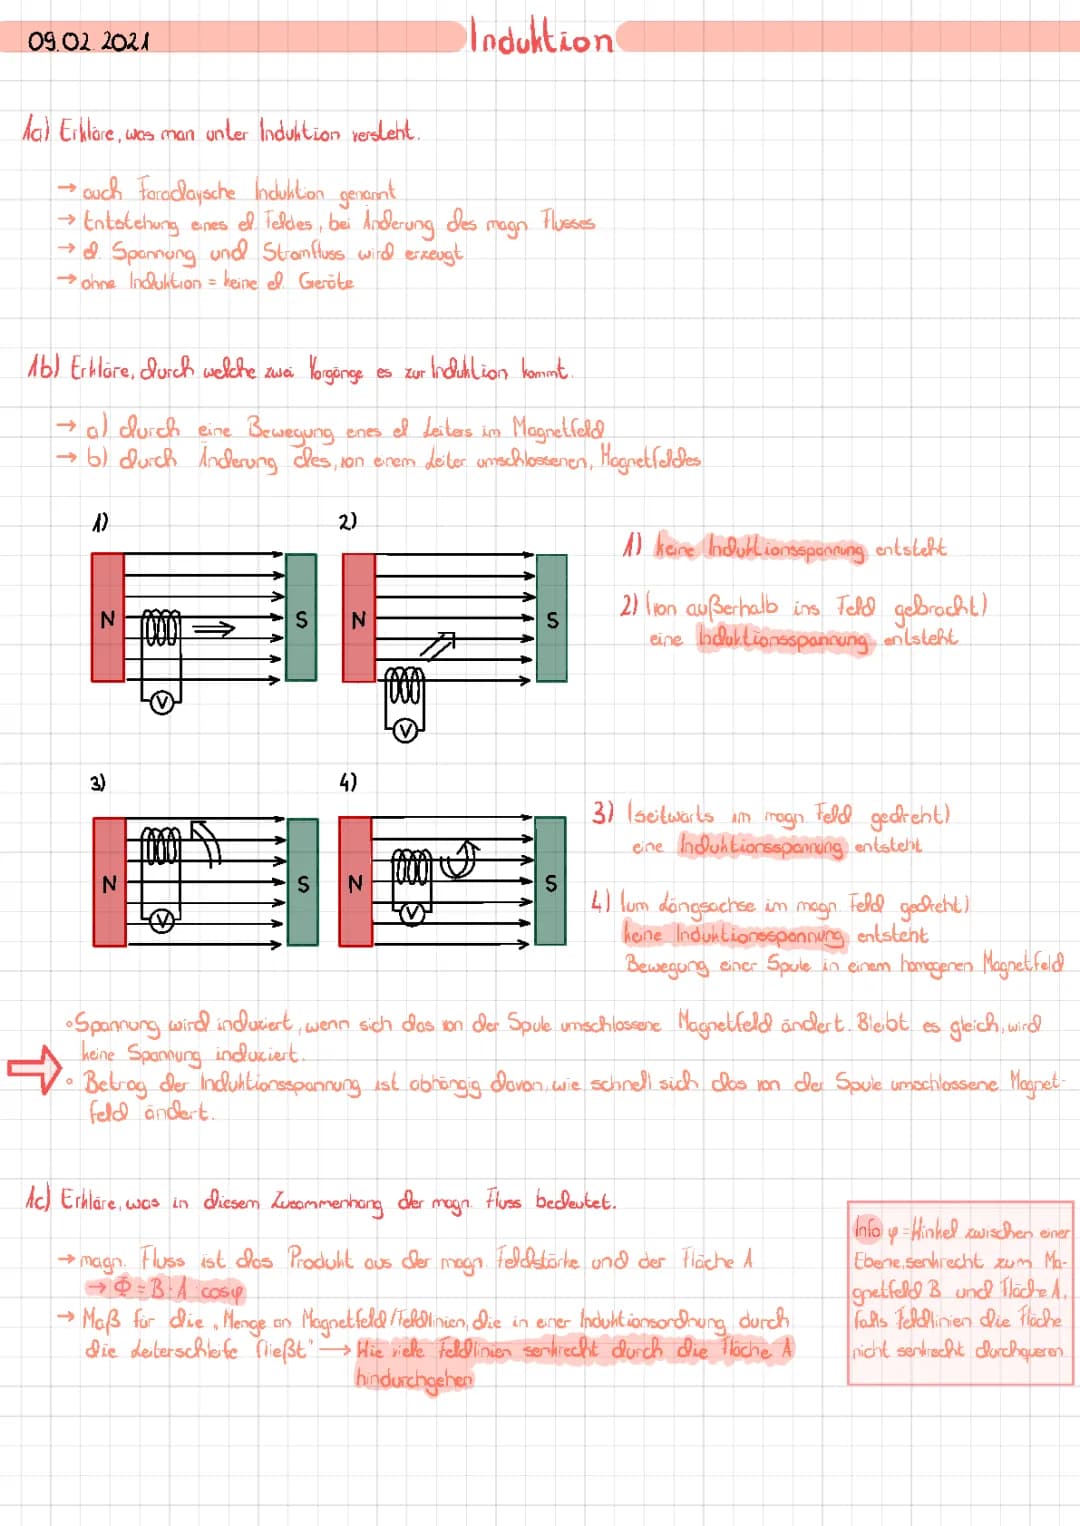 09.02.2021
Induktion
1a) Erkläre, was man unter Induktion versteht.
→ auch Faradaysche Induktion genannt
→ Entstehung eines el. Feldes, bei Änderung des magn. Flusses
→ el. Spannung und Stromfluss wird erzeugt
→ ohne Induktion = keine el. Geräte
1b) Erkläre, durch welche zwei Vorgänge es zur Induktion kommt.
→ a) durch eine Bewegung enes el Leiters im Magnetfeld
→ b) durch Änderung des, von einem Leiter umschlossenen, Magnetfeldes
1)
N
S
V
2)
N
S
V
1) keine Induktionsspannung entsteht
2) (von außerhalb ins Feld gebracht)
eine Induktionsspannung entsteht
3)
N
S
V
4)
N
S
V
3) (seitwärts im magn. Feld gedreht)
eine Induktionsspannung entsteht
4) (um Längsachse im magn. Feld gedreht)
keine Induktionsspannung entsteht
Bewegung einer Spule in einem homogenen Magnetfeld
• Spannung wird induziert, wenn sich das von der Spule umschlossene Magnetfeld ändert. Bleibt es gleich, wird
keine Spannung induziert.
• Betrag der Induktionsspannung ist abhängig davon, wie schnell sich das von der Spule umschlossene Magnet-
feld ändert.
1c) Erkläre, was in diesem Zusammenhang der magn. Fluss bedeutet.
→ magn. Fluss ist das Produkt aus der magn. Feldstärke und der Fläche A
→ Φ = B · A · cosφ
→ Maß für die „Menge an Magnetfeld/Feldlinien, die in einer Induktionsordnung durch
die Leiterschleife fließt" → Wie viele Feldlinien senkrecht durch die Fläche A
hindurchgehen
Info φ = Winkel zwischen einer
Ebene, senkrecht zum Ma-
gnetfeld B und Fläche A,
falls Feldlinien die Fläche
nicht senkrecht durchqueren